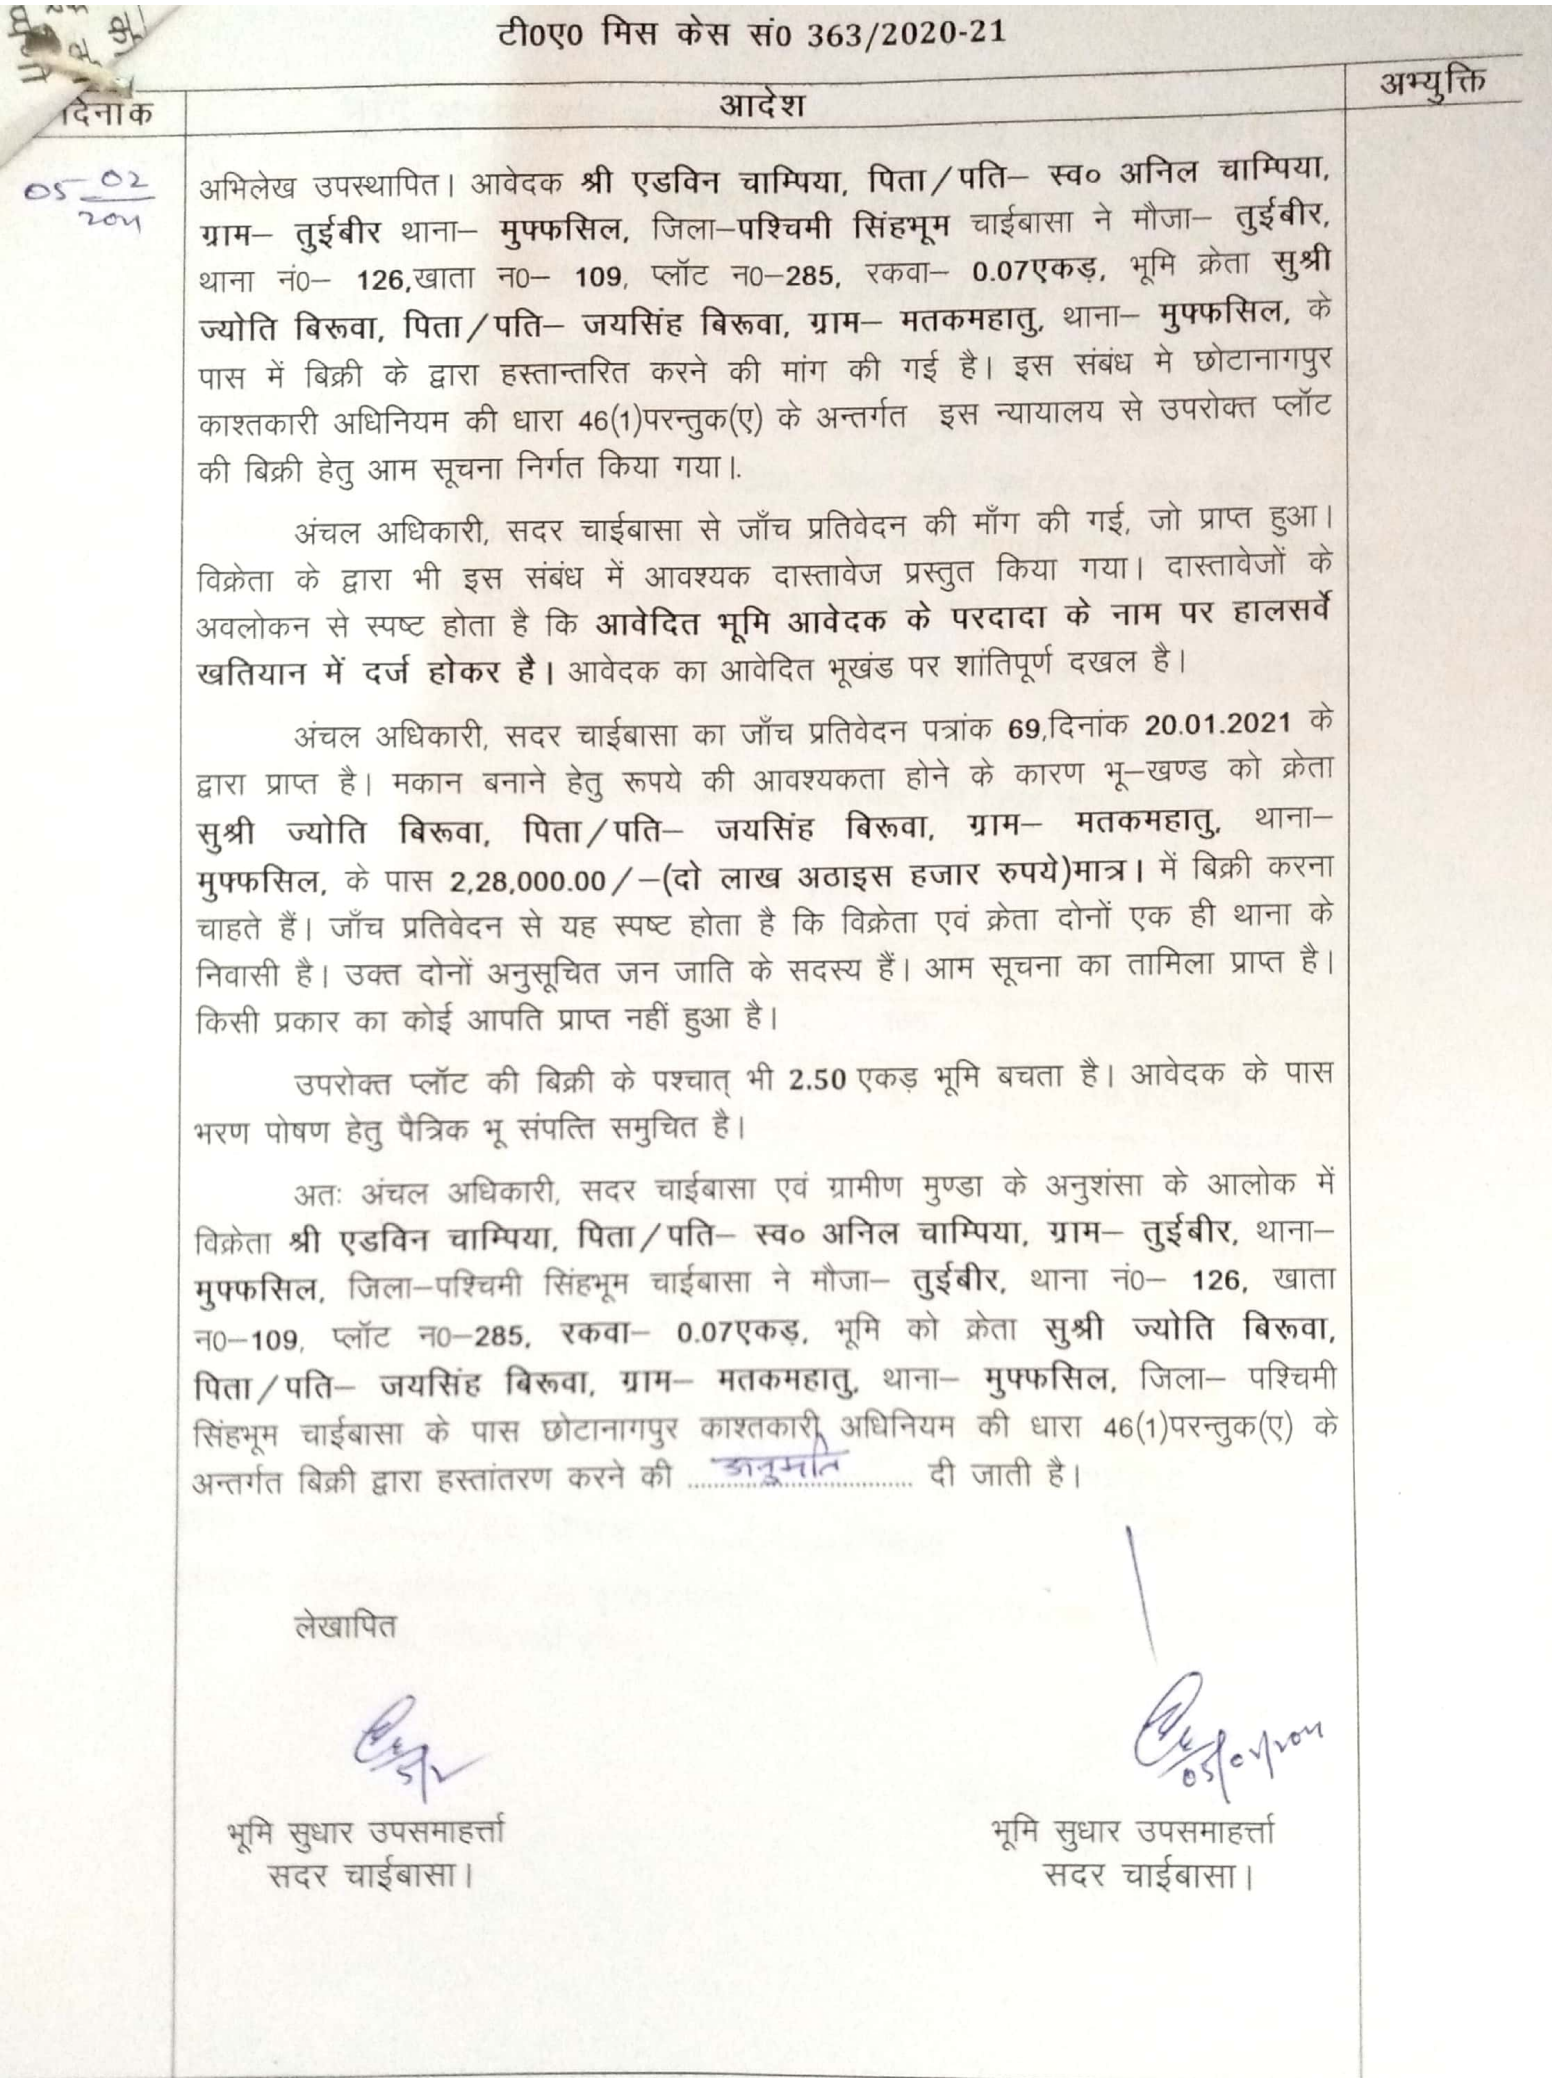 टी0ए0 मिस केस सं0 363/2020-21
दिनांक
आदेश
अभ्युक्ति
05 02
2021
अभिलेख उपस्थापित। आवेदक श्री एडविन चाम्पिया, पिता/पति– स्व० अनिल चाम्पिया,
ग्राम– तुईबीर थाना– मुफ्फसिल, जिला–पश्चिमी सिंहभूम चाईबासा ने मौजा– तुईबीर,
थाना नं0– 126,खाता न0– 109, प्लॉट न0–285, रकवा– 0.07एकड़, भूमि क्रेता सुश्री
ज्योति बिरूवा, पिता/पति– जयसिंह बिरूवा, ग्राम– मतकमहातु, थाना– मुफ्फसिल, के
पास में बिक्री के द्वारा हस्तान्तरित करने की मांग की गई है। इस संबंध मे छोटानागपुर
काश्तकारी अधिनियम की धारा 46(1)परन्तुक(ए) के अन्तर्गत इस न्यायालय से उपरोक्त प्लॉट
की बिक्री हेतु आम सूचना निर्गत किया गया।.
अंचल अधिकारी, सदर चाईबासा से जाँच प्रतिवेदन की माँग की गई, जो प्राप्त हुआ।
विक्रेता के द्वारा भी इस संबंध में आवश्यक दास्तावेज प्रस्तुत किया गया। दास्तावेजों के
अवलोकन से स्पष्ट होता है कि आवेदित भूमि आवेदक के परदादा के नाम पर हालसर्वे
खतियान में दर्ज होकर है। आवेदक का आवेदित भूखंड पर शांतिपूर्ण दखल है।
अंचल अधिकारी, सदर चाईबासा का जाँच प्रतिवेदन पत्रांक 69,दिनांक 20.01.2021 के
द्वारा प्राप्त है। मकान बनाने हेतु रूपये की आवश्यकता होने के कारण भू–खण्ड को क्रेता
सुश्री ज्योति बिरूवा, पिता/पति– जयसिंह बिरूवा, ग्राम– मतकमहातु, थाना–
मुफ्फसिल, के पास 2,28,000.00/–(दो लाख अठाइस हजार रुपये)मात्र। में बिक्री करना
चाहते हैं। जाँच प्रतिवेदन से यह स्पष्ट होता है कि विक्रेता एवं क्रेता दोनों एक ही थाना के
निवासी है। उक्त दोनों अनुसूचित जन जाति के सदस्य हैं। आम सूचना का तामिला प्राप्त है।
किसी प्रकार का कोई आपति प्राप्त नहीं हुआ है।
उपरोक्त प्लॉट की बिक्री के पश्चात् भी 2.50 एकड़ भूमि बचता है। आवेदक के पास
भरण पोषण हेतु पैत्रिक भू संपत्ति समुचित है।
अतः अंचल अधिकारी, सदर चाईबासा एवं ग्रामीण मुण्डा के अनुशंसा के आलोक में
विक्रेता श्री एडविन चाम्पिया, पिता/पति– स्व० अनिल चाम्पिया, ग्राम– तुईबीर, थाना–
मुफ्फसिल, जिला–पश्चिमी सिंहभूम चाईबासा ने मौजा– तुईबीर, थाना नं0– 126, खाता
न0–109, प्लॉट न0–285, रकवा– 0.07एकड़, भूमि को क्रेता सुश्री ज्योति बिरूवा,
पिता/पति– जयसिंह बिरूवा, ग्राम– मतकमहातु, थाना– मुफ्फसिल, जिला– पश्चिमी
सिंहभूम चाईबासा के पास छोटानागपुर काश्तकारी अधिनियम की धारा 46(1)परन्तुक(ए) के
अन्तर्गत बिक्री द्वारा हस्तांतरण करने की ....अनुमति.... दी जाती है।
लेखापित
5/2
05/02/2021
भूमि सुधार उपसमाहर्त्ता
भूमि सुधार उपसमाहर्त्ता
सदर चाईबासा।
सदर चाईबासा।